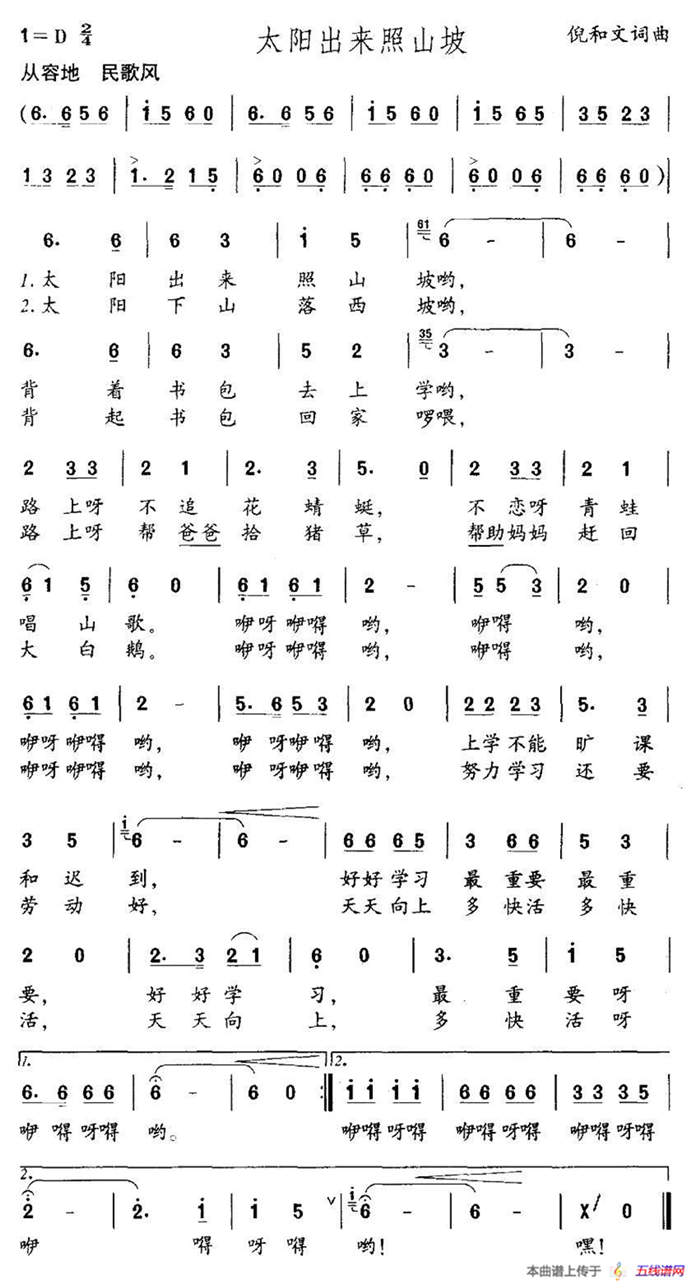 1=D 2/4 太阳出来照山坡 倪和文词曲
从容地 民歌风
(6. 6 5 6 | i 5 6 0 | 6. 6 5 6 | i 5 6 0 | i 5 6 5 | 3 5 2 3 |
1 3 2 3 | 1. 2 1 5 | 6 0 0 6 | 6 6 6 0 | 6 0 0 6 | 6 6 6 0 )|
6. 6 | 6 3 | i 5 | 61 6 - | 6 - |
1.太 阳 出 来 照 山 坡哟,
2.太 阳 下 山 落 西 坡哟,
6. 6 | 6 3 | 5 2 | 35 3 - | 3 - |
背 着 书 包 去 上 学哟,
背 起 书 包 回 家 啰喂,
2 3 3 | 2 1 | 2. 3 | 5. 0 | 2 3 3 | 2 1 |
路 上呀 不 追 花 蜻 蜓, 不 恋呀 青 蛙
路 上呀 帮 爸爸 拾 猪 草, 帮助妈妈 赶 回
6 1 5 | 6 0 | 6 1 6 1 | 2 - | 5 5 3 | 2 0 |
唱 山 歌。 咿呀 咿嘚 哟, 咿嘚 哟,
大 白 鹅。 咿呀 咿嘚 哟, 咿嘚 哟,
6 1 6 1 | 2 - | 5. 6 5 3 | 2 0 | 2 2 2 3 | 5. 3 |
咿呀 咿嘚 哟, 咿 呀咿嘚 哟, 上学不能 旷 课
咿呀 咿嘚 哟, 咿 呀咿嘚 哟, 努力学习 还 要
3 5 | i 6 - | 6 - | 6 6 6 5 | 3 6 6 | 5 3 |
和 迟 到, 好好学习 最 重要 最 重
劳 动 好, 天天向上 多 快活 多 快
2 0 | 2. 3 2 1 | 6 0 | 3. 5 | i 5 |
要, 好 好 学 习, 最 重 要 呀
活, 天 天 向 上, 多 快 活 呀
1. 2.
6. 6 6 6 | 6 - | 6 0 :| i i i i | 6 6 6 6 | 3 3 3 5 |
咿 嘚呀嘚 哟。 咿嘚呀嘚 咿嘚呀嘚 咿嘚呀嘚
2.
2 - | 2. i | i 5 ∨ | i 6 - | 6 - | X 0 |
咿 嘚 呀 嘚 哟! 嘿!
本曲谱上传于 五线谱网